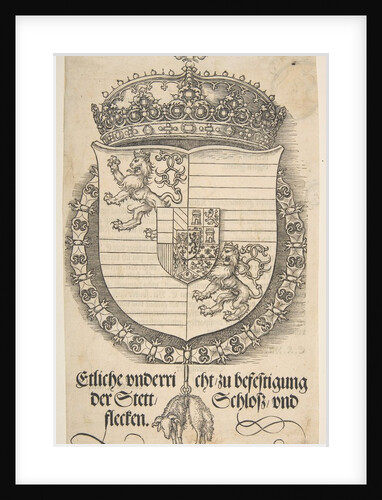 Etliche vnderri cht/zu befestigung
der Stett/ Schloß/vnd
flecken.